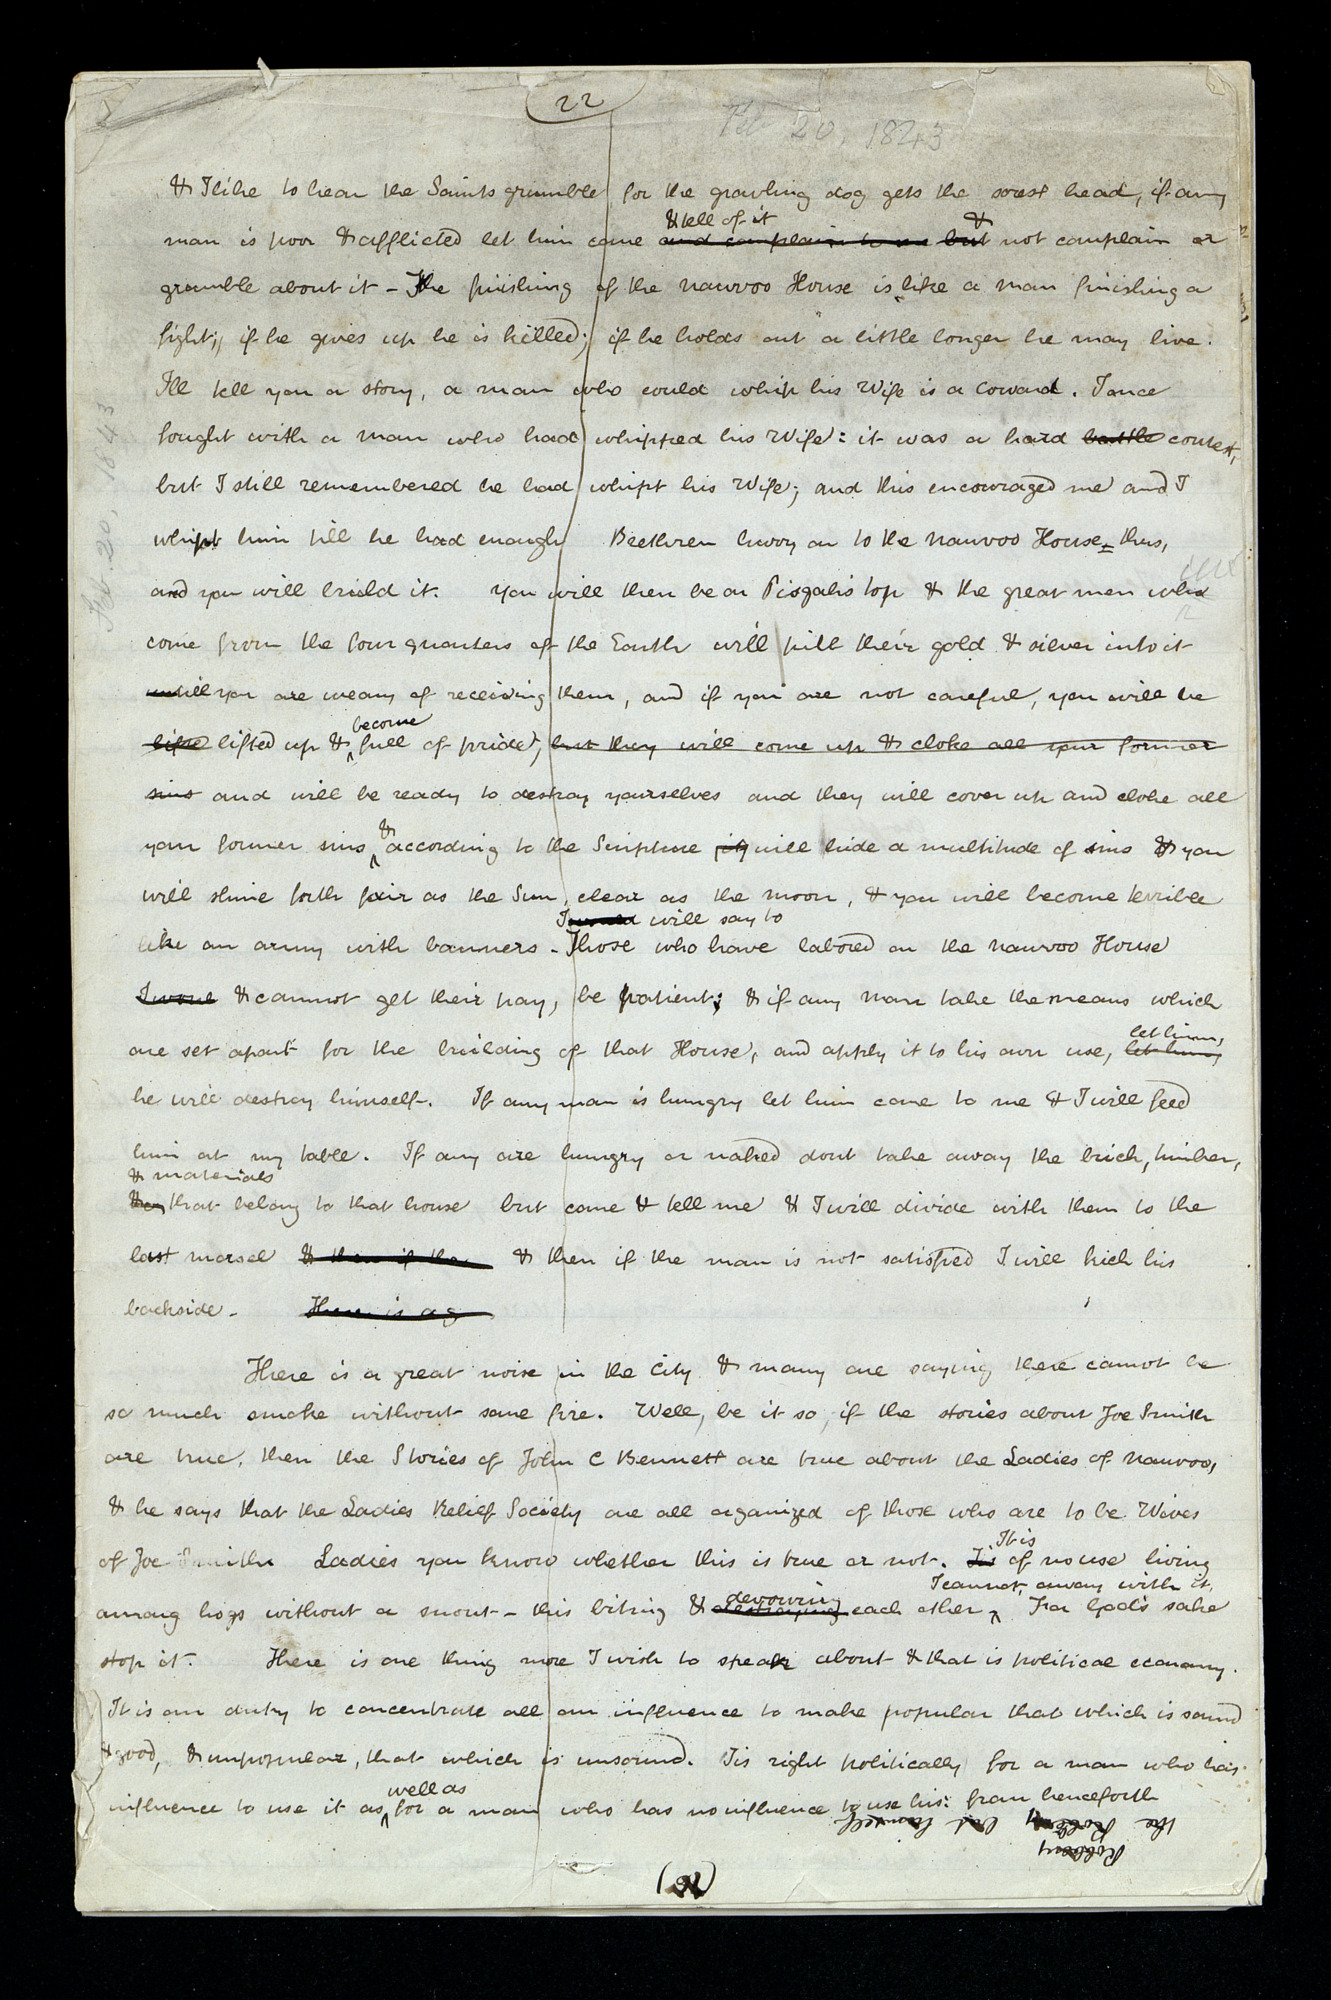 22
Feb 20, 1843
& I like to hear the Saints grumble for the growling dog gets the sorest head, if any
& tell of it &
man is poor & afflicted let him come and complain to me but not complain or
grumble about it - The finishing of the nauvoo House is like a man finishing a
fight; if he gives up he is killed; if he holds out a little longer he may live.
I'll tell you a story, a man who would whip his Wife is a coward. I once
fought with a man who had whipped his Wife: it was a hard battle contest,
but I still remembered he had whipt his Wife; and this encouraged me and I
whipt him till he had enough Brethren hurry on to the nauvoo House thus,
and you will build it. You will then be on Pisgah's top & the great men who
come from the four quarters of the Earth will pill their gold & silver into it
untill you are weary of receiving them, and if you are not careful, you will be
become
lifted up & full of pride, but they will come up & cloke all your former
sins and will be ready to destroy yourselves and they will cover up and cloke all
&
your former sins according to the Scripture will hide a multitude of sins & you
will shine forth fair as the Sun, clear as the moon, & you will become terrible
I would will say to
like an army with banners - Those who have labored on the nauvoo House
& cannot get their pay, be patient; & if any man take the means which
let him,
are set apart for the building of that House, and apply it to his own use, let him,
he will destroy himself. If any man is hungry let him come to me & I will feed
him at my table. If any are hungry or naked dont take away the brick, timber,
& materials
that belong to that house but come & tell me & I will divide with them to the
last morsel & then if the & then if the man is not satisfied I will kick his
backside - There is a g
There is a great noise in the City & many are saying there cannot be
so much smoke without some fire. Well, be it so, if the stories about Joe Smith
are true, then the Stories of John C Bennett are true about the Ladies of nauvoo,
& he says that the Ladies Relief Society are all organized of those who are to be Wives
of Joe Smith Ladies you know whether this is true or not.
It is
of no use living
I cannot away with it.
devouring
among hogs without a snout - this biting & destroying each other For God's sake
stop it. There is one thing more I wish to speak about & that is political economy.
It is our duty to concentrate all our influence to make popular that which is sound
& good, & unpopular, that which is unsound. Tis right politically for a man who has
well as
influence to use it as for a man who has no influence to use his: from henceforth
(22)
Feb. 20, 1843